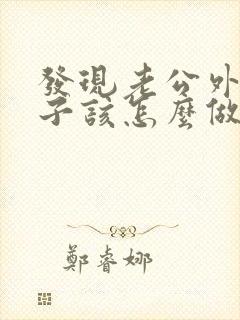 發現老公外
子該怎麼做
鄭睿娜